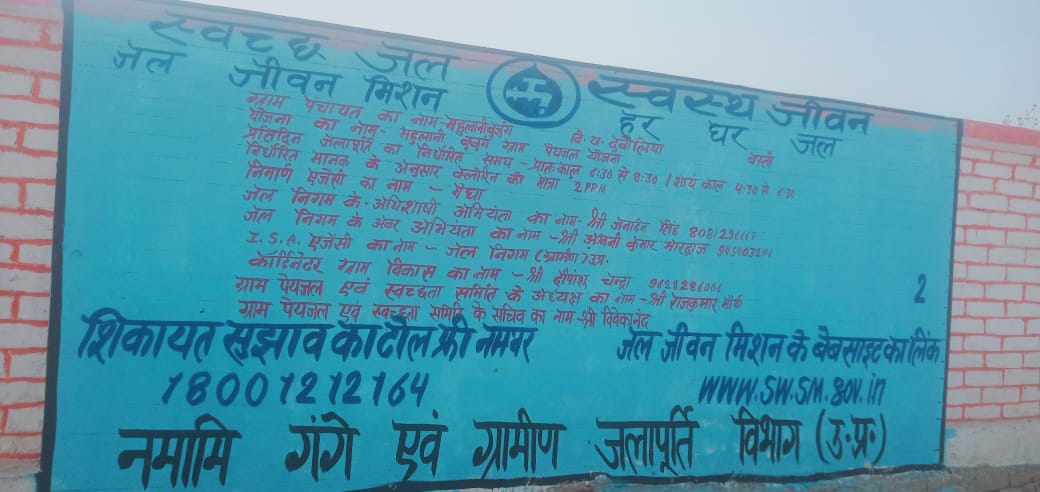 स्वच्छ जल स्वस्थ जीवन
जल जीवन मिशन हर घर जल
ग्राम पंचायत का नाम- महुलानी बुजुर्ग वि. ख. दुबौलिया बस्ती
योजना का नाम- महुलानी बुजुर्ग ग्राम पेयजल योजना
प्रतिदिन जलापूर्ति का निर्धारित समय - प्रातः काल 6:30 से 8:30 / शायं काल 4:30 से 6:30
निर्धारित मानक के अनुसार क्लोरिन की मात्रा 2 PPM
निर्माण एजेंसी का नाम - मेघा
जल निगम के अधिशाषी अभियंता का नाम- श्री जनार्दन सिंह
जल निगम के अवर अभियंता का नाम - श्री अश्विनी कुमार भारद्वाज
I.S.A. एजेंसी का नाम - जल निगम (ग्रामीण) उ.प्र.
कॉर्डिनेटर ग्राम विकास का नाम - श्री दीपांश चन्द्रा 9628286006
ग्राम पेयजल एवं स्वच्छता समिति के अध्यक्ष का नाम - श्री राजकुमार
ग्राम पेयजल एवं स्वच्छता समिति के सचिव का नाम - श्री विवेकानंद
2
शिकायत सुझाव का टोल फ्री नम्बर जल जीवन मिशन के बेबसाइट का लिंक
18001212164 www.sw.sm.gov.in
नमामि गंगे एवं ग्रामीण जलापूर्ति विभाग (उ.प्र.)